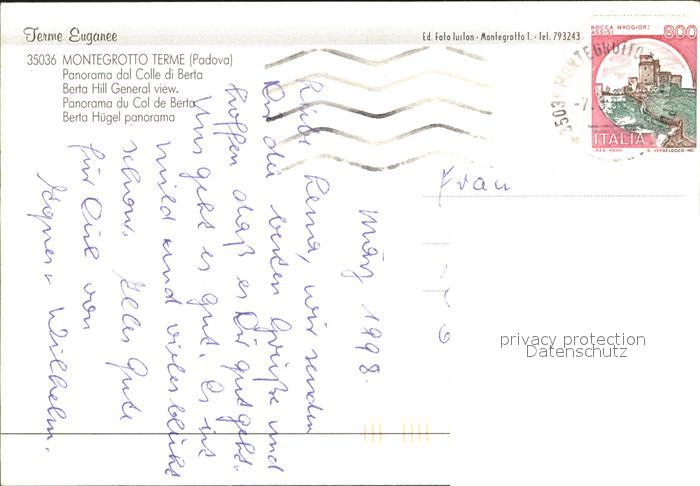 Terme Euganee
Ed. Foto Turlon - Montegrotto T. - Tel. 793243
35036 MONTEGROTTO TERME (Padova)
Panorama dal Colle di Berta
Berta Hill General view.
Panorama du Col de Berta
Berta Hügel panorama
ROCCA MAGGIORE
ASSISI
800
ITALIA
I.P.Z.S. ROMA
E. VANGELLI
35036 MONTEGROTTO
Frau
privacy protection
Datenschutz
März 1998.
Liebe Lena, wir senden
Dir die besten Grüße und
hoffen daß es Dir gut geht.
Uns geht es gut. Es ist
mild und vieles blüht
schon. Alles Gute
für Dich von
Agnes u Wilhelm.